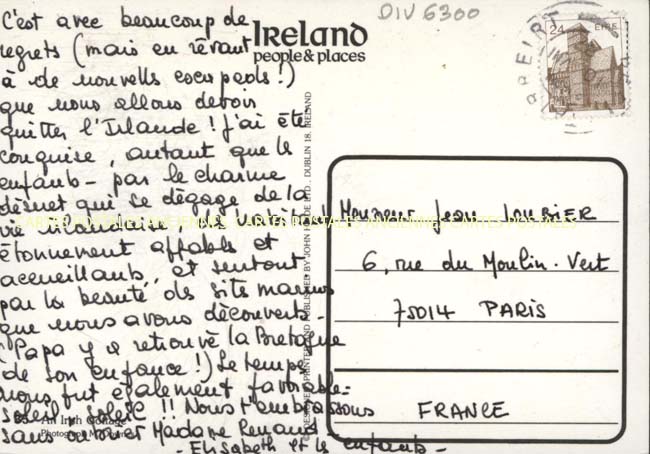 C'est avec beaucoup de
regrets (mais en rêvant
à de nouvells escapeols!)
que nous allons devoir
quitter l'Irlande! J'ai été
conquise, autant que ls
enfants - par le charme
désuet qui se dégage de la
vie irlandaise,
étonnement affables et
accueillants, et surtout.
par la beauté ds sits marins
que nous avons découverts -
(Papa y a retrouvé la Bretagne
de son enfance!) Le temps
nous fut également favorable:
soleil, soleil!! Nous t'embrassons
sans oublier Madame Renaud -
- Elisabeth et ls enfants -
An Irish Cottage
DIV 6300
IRELAND
people & places
24
EIRE
© DESIGNED, PRINTED AND PUBLISHED BY JOHN HINDE LTD., DUBLIN 18, IRELAND
Monsieur Jean LOUBIER
6, rue du Moulin-Vert
75014 PARIS
FRANCE
CARTES POSTALES ANCIENNES CARTES POSTALES ANCIENNES CARTES POSTALES